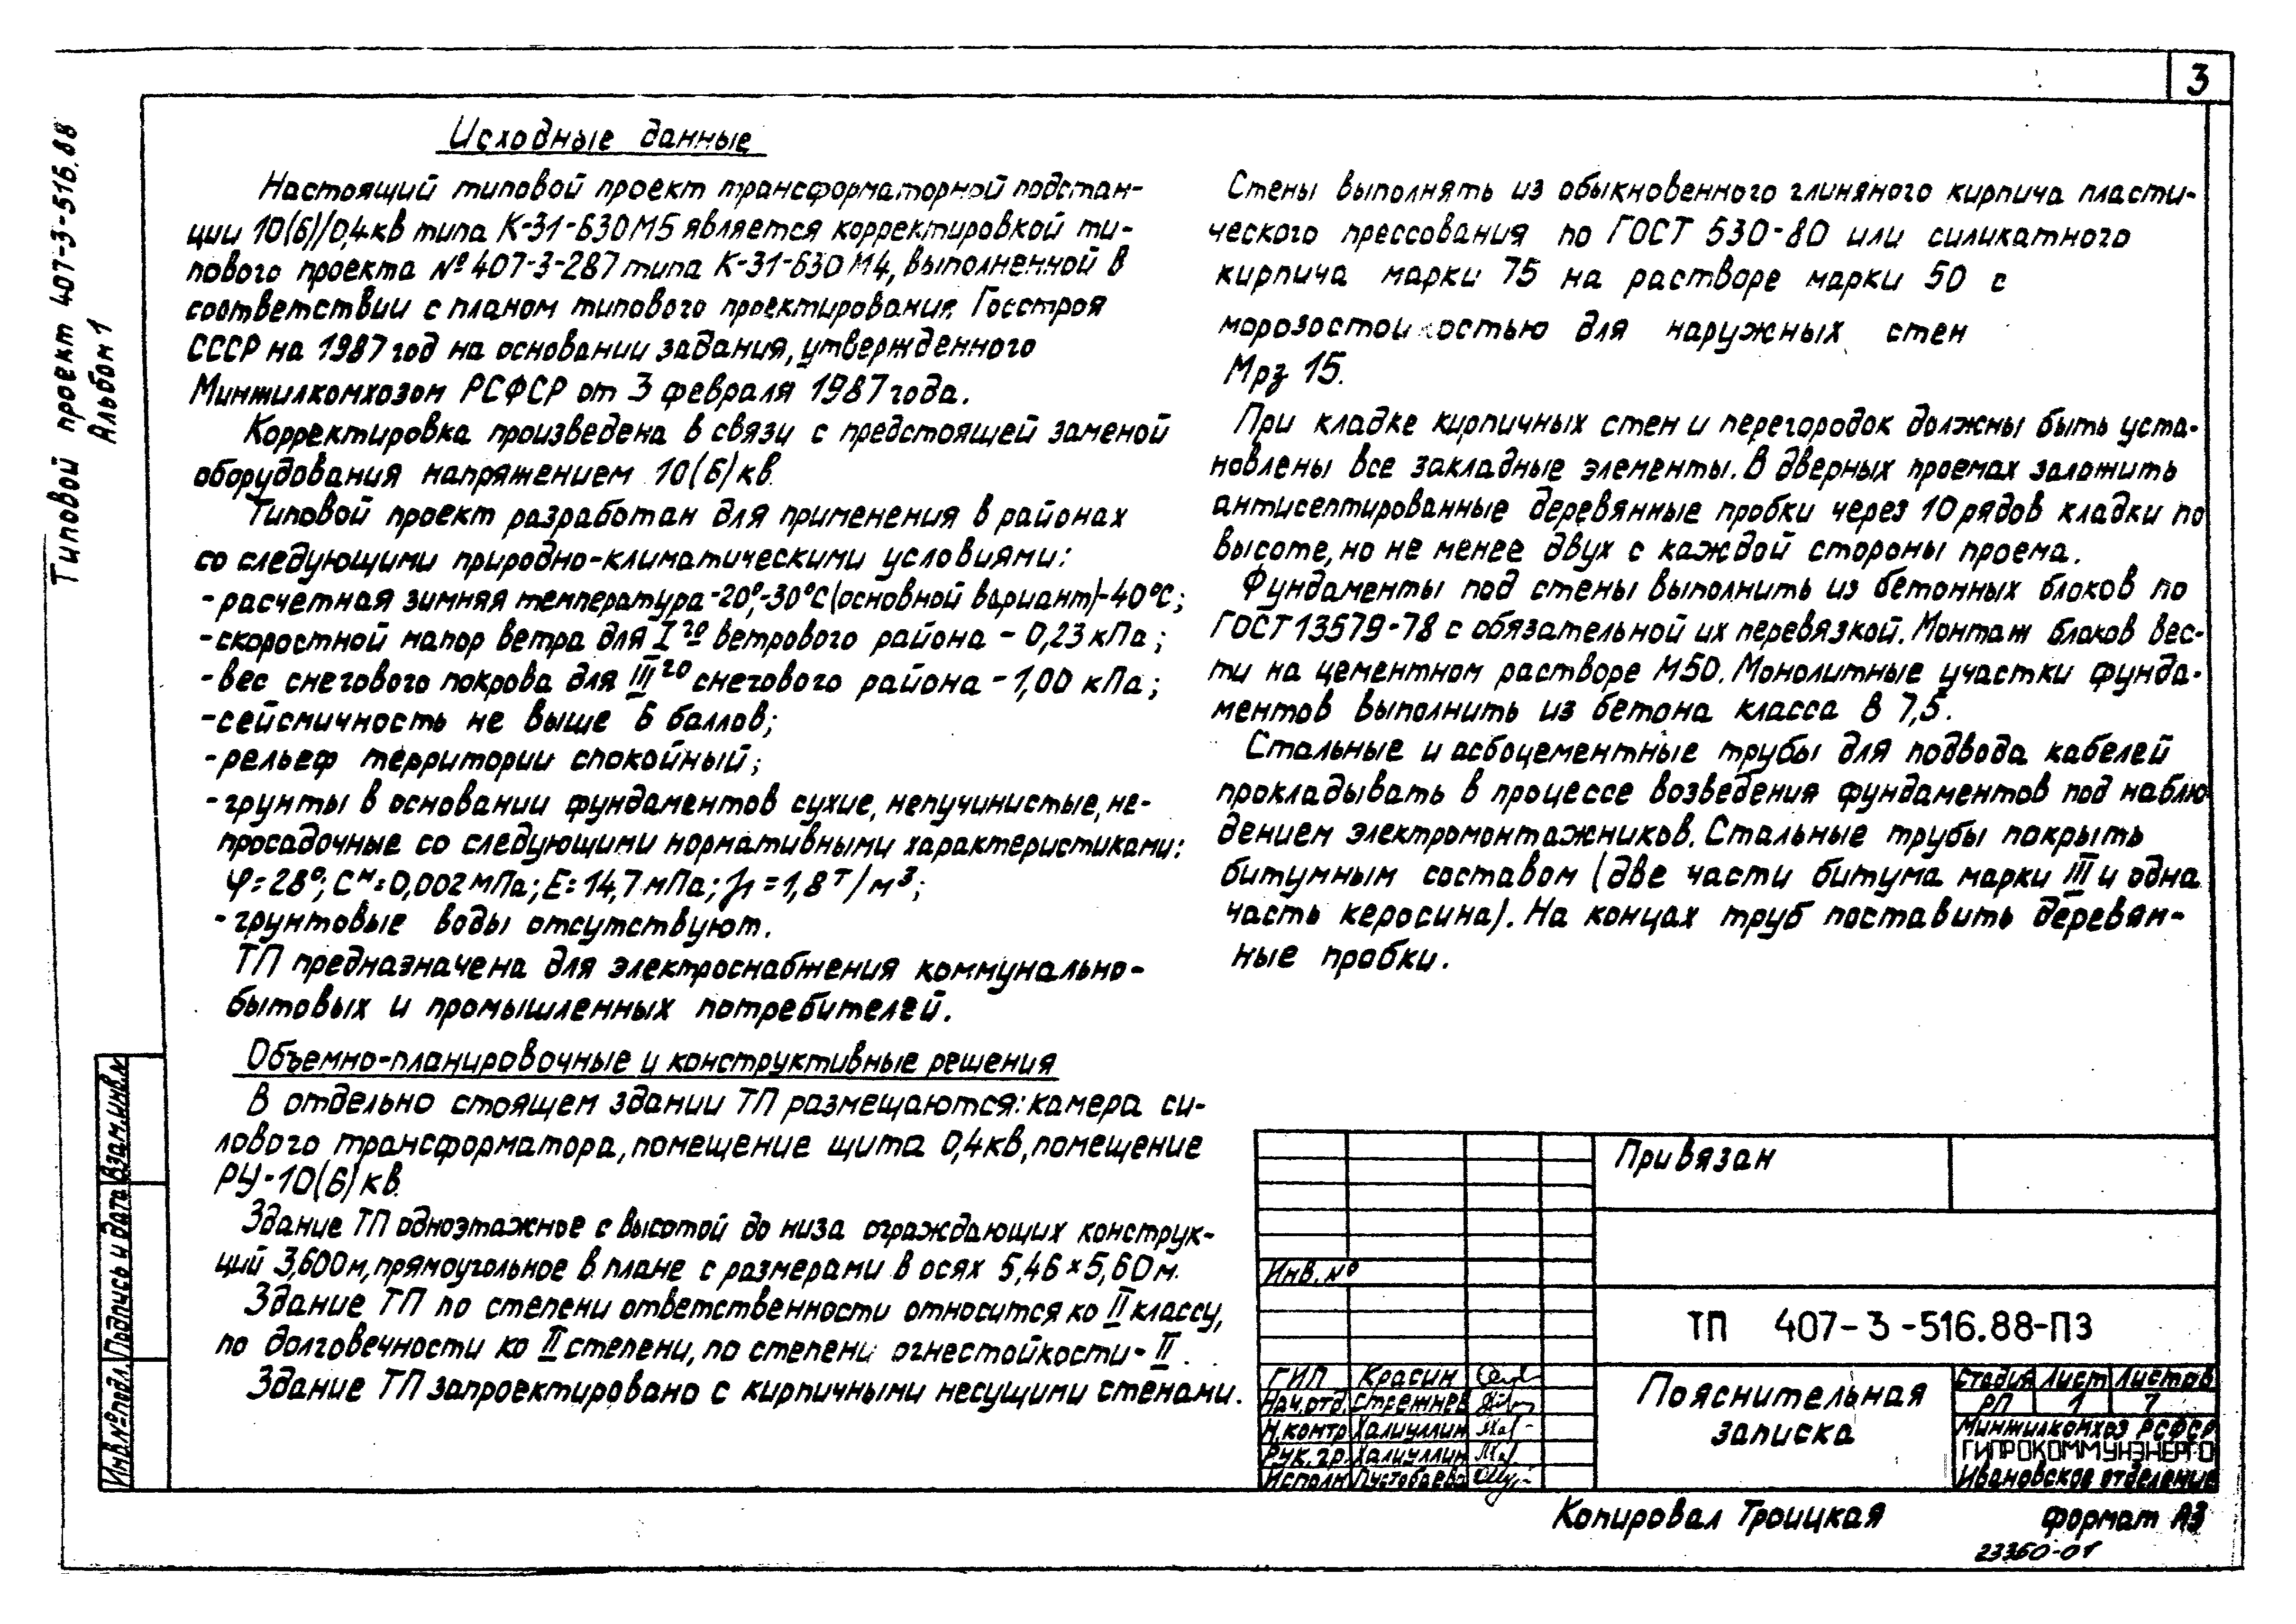 3
Типовой проект 407-3-516.88
Альбом 1
Исходные данные
Настоящий типовой проект трансформаторной подстан-
ции 10(6)/0,4кв типа К-31-630М5 является корректировкой ти-
пового проекта № 407-3-287 типа К-31-630М4, выполненной в
соответствии с планом типового проектирования Госстроя
СССР на 1987 год на основании задания, утвержденного
Минжилкомхозом РСФСР от 3 февраля 1987 года.
Корректировка произведена в связи с предстоящей заменой
оборудования напряжением 10(6) кв.
Типовой проект разработан для применения в районах
со следующими природно-климатическими условиями:
- расчетная зимняя температура -20°,-30°С (основной вариант)-40°С;
- скоростной напор ветра для I го ветрового района - 0,23 кПа;
- вес снегового покрова для III го снегового района - 1,00 кПа;
- сейсмичность не выше 6 баллов;
- рельеф территории спокойный;
- грунты в основании фундаментов сухие, непучинистые, не-
просадочные со следующими нормативными характеристиками:
φ=28°; Сн=0,002 мПа; Е=14,7 мПа; γ1=1,8 т/м³;
- грунтовые воды отсутствуют.
ТП предназначена для электроснабжения коммунально-
бытовых и промышленных потребителей.
Объемно-планировочные и конструктивные решения
В отдельно стоящем здании ТП размещаются: камера си-
лового трансформатора, помещение щита 0,4кв, помещение
РУ-10(6) кв.
Здание ТП одноэтажное с высотой до низа ограждающих конструк-
ций 3,600м, прямоугольное в плане с размерами в осях 5,46×5,60м.
Здание ТП по степени ответственности относится ко II классу,
по долговечности ко II степени, по степени огнестойкости - II.
Здание ТП запроектировано с кирпичными несущими стенами.
Стены выполнять из обыкновенного глиняного кирпича пласти-
ческого прессования по ГОСТ 530-80 или силикатного
кирпича марки 75 на растворе марки 50 с
морозостойкостью для наружных стен
Мрз 15.
При кладке кирпичных стен и перегородок должны быть уста-
новлены все закладные элементы. В дверных проемах заложить
антисептированные деревянные пробки через 10 рядов кладки по
высоте, но не менее двух с каждой стороны проема.
Фундаменты под стены выполнить из бетонных блоков по
ГОСТ 13579-78 с обязательной их перевязкой. Монтаж блоков вес-
ти на цементном растворе М50. Монолитные участки фунда-
ментов выполнить из бетона класса В 7,5.
Стальные и асбоцементные трубы для подвода кабелей
прокладывать в процессе возведения фундаментов под наблю
дением электромонтажников. Стальные трубы покрыть
битумным составом (две части битума марки III и одна
часть керосина). На концах труб поставить деревян-
ные пробки.
Взам.инв.№
Подпись и дата
Инв.№подл.
Привязан
Инв.№
ТП 407-3-516.88-ПЗ
ГИП Красин
Нач.отд. Стрежнев
Н.контр Халиуллин
Рук.гр. Халиуллин
Исполн Пустобаева
Пояснительная
записка
Стадия Лист Листов
РП 1 7
Минжилкомхоз РСФСР
ГИПРОКОММУНЭНЕРГО
Ивановское отделение
Копировал Троицкая
Формат А3
23360-01